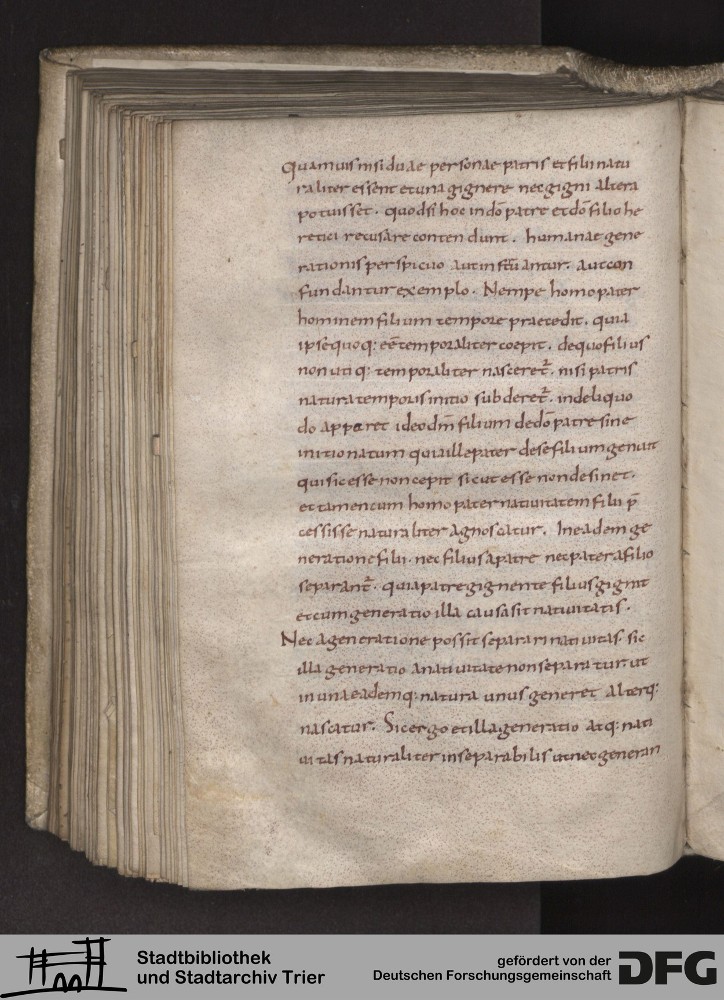 Quamuis nisi duae personae patris et filii natu
raliter essent et una gignere nec gigni altera
potuisset. quod si hoc in dō patre et dō filio he
retici recusare contendunt. humanae gene
rationis perspicuo aut instruantur. aut con
fundantur exemplo. Nempe homo pater
hominem filium tempore praecedit. quia
ipse quoq: eē temporaliter coepit. de quo filius
non utiq: temporaliter nasceret̄. nisi patris
natura temporis initio subderet̄. inde liquo
do apparet ideo dm̄ filium de dō patre sine
initio natum quia ille pater de se filium genuit
qui sic esse non cepit sicut esse non desinet.
et tamen cum homo pater natiuitatem filii p̄
cessisse naturaliter agnoscatur. In eadem ge
neratione filii. nec filius a patre nec pater a filio
separant̄. quia patre gignente filius gignit
et cum generatio illa causa sit natiuitatis.
Nec a generatione possit separari natiuitas. sic
illa generatio a natiuitate non separatur. ut
in una eademq: natura unus generet alterq:
nascatur. Sic ergo et illa generatio atq: nati
uitas naturaliter inseparabilis ut nec generan
Stadtbibliothek
und Stadtarchiv Trier
gefördert von der
Deutschen Forschungsgemeinschaft
DFG